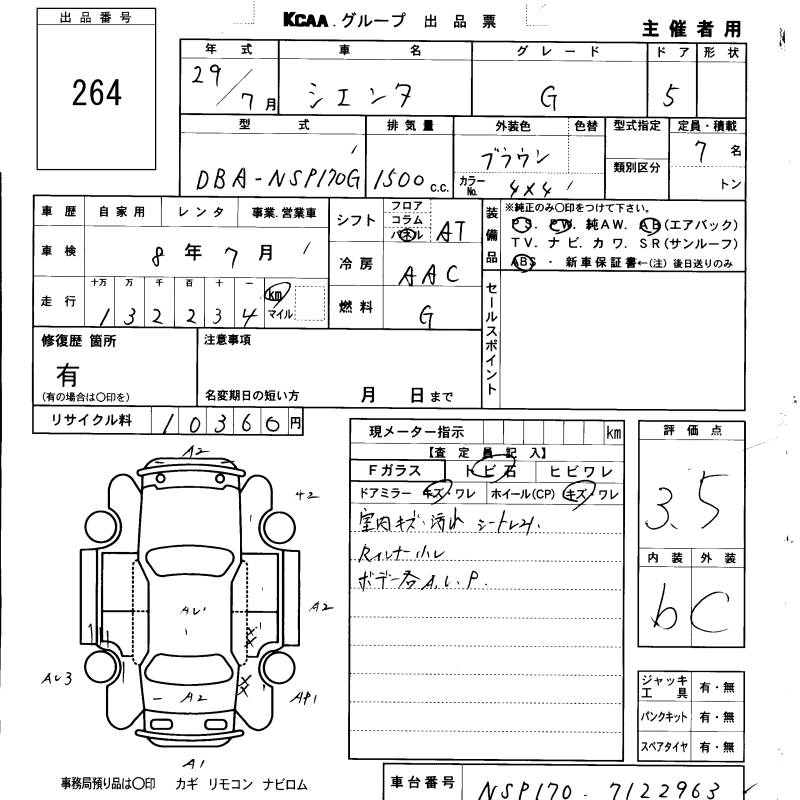 出品番号
264
KCAA.グループ 出品票
主催者用
年式
29/7月
車名
シエンタ
グレード
G
ドア
5
形状
型式
DBA-NSP170G
排気量
1500 c.c.
外装色
ブラウン
色替
カラーNo.
4X4
型式指定
類別区分
定員・積載
7 名
トン
車歴
自家用
レンタ
事業.営業車
車検
8年7月
走行
十万 万 千 百 十 一
1 3 2 2 3 4
km
マイル
シフト
フロア
コラム
パネル
AT
冷房
AAC
燃料
G
装備品
※純正のみ〇印をつけて下さい。
PS. PW. 純AW. AB(エアバック)
TV. ナビ. カワ. SR(サンルーフ)
ABS ・ 新車保証書←(注) 後日送りのみ
セールスポイント
修復歴 箇所
有
(有の場合は〇印を)
注意事項
名変期日の短い方
月 日まで
リサイクル料
10360円
現メーター指示
km
【査定員記入】
Fガラス
トビ石
ヒビワレ
ドアミラー キズ・ワレ
ホイール(CP) キズ・ワレ
室内キズ・汚れ シートレスリ.
Rインナー小レ
ボデー各A.U.P.
評価点
3.5
内装
b
外装
C
ジャッキ工具 有・無
パンクキット 有・無
スペアタイヤ 有・無
A2
A2
AU
AU3
A2
AP1
A1
事務局預り品は〇印 カギ リモコン ナビロム
車台番号
NSP170-7122963